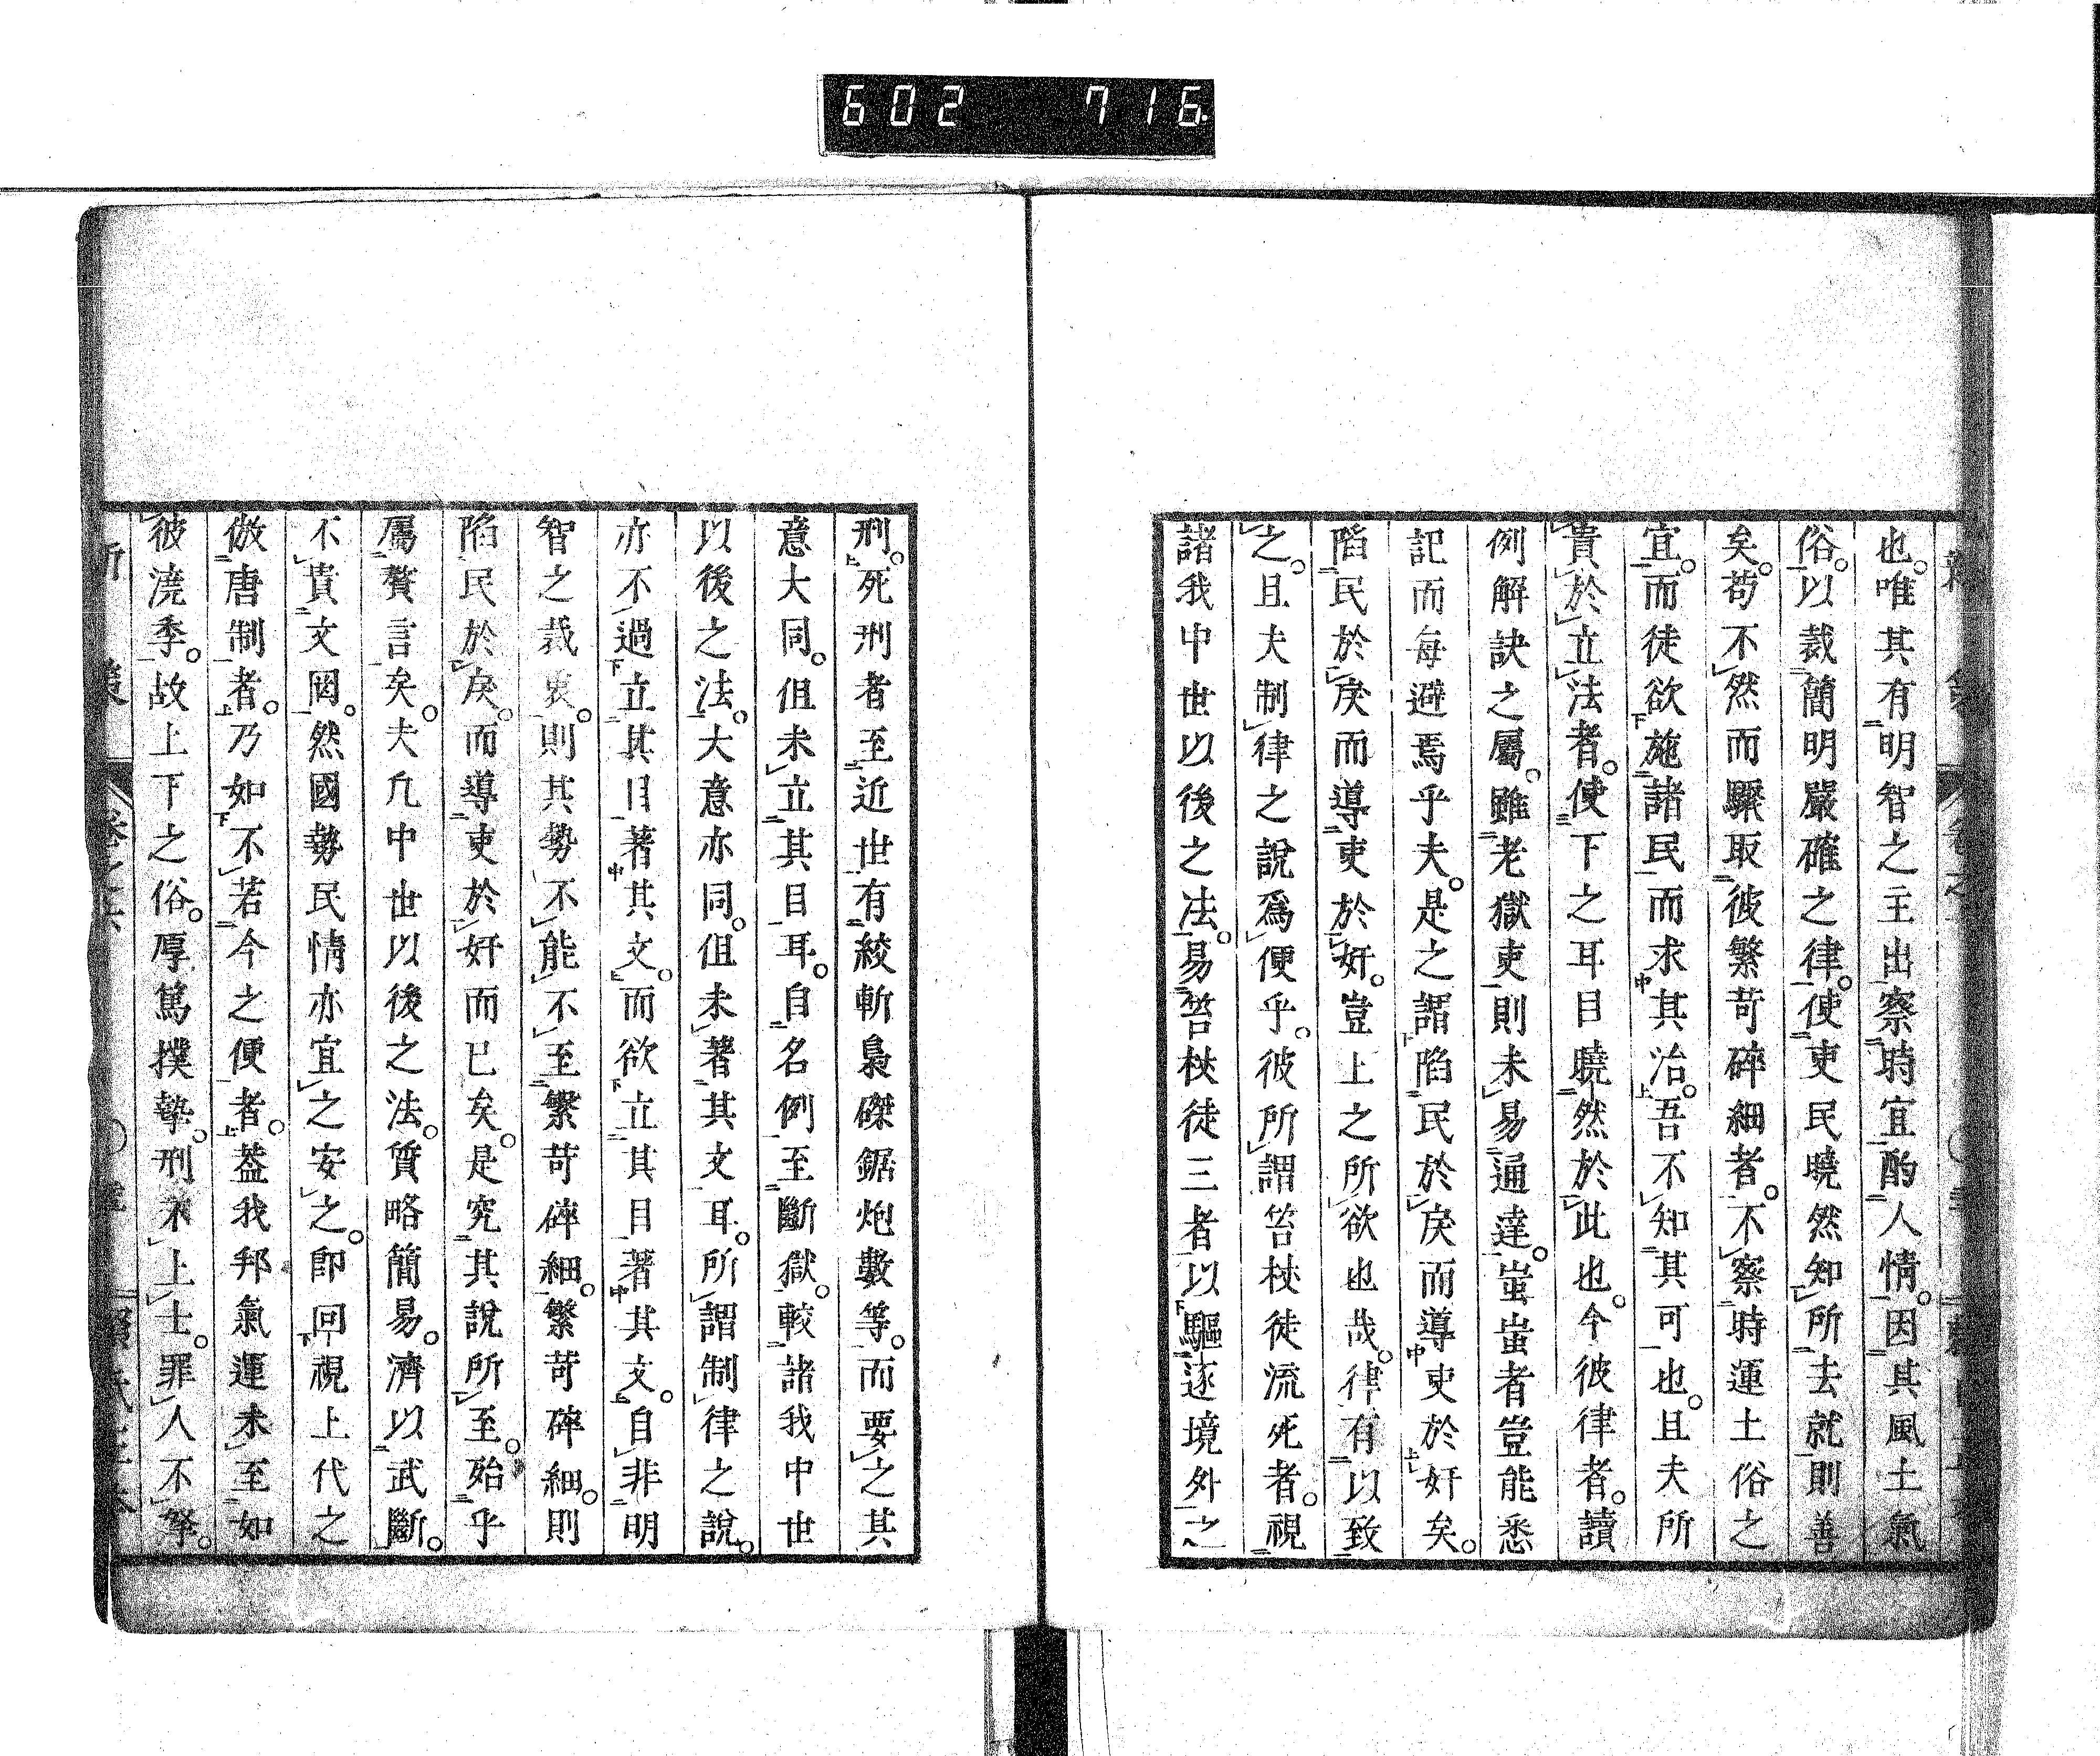 602 716
也。唯其有明智之主出察時宜酌人情。因其風土氣
俗。以裁簡明嚴確之律。使吏民曉然知所去就則善
矣。苟不然而驟取彼繁苛碎細者。不察時運土俗之
宜。而徒欲施諸民而求其治。吾不知其可也。且夫所
貴於立法者。使下之耳目曉然於此也。今彼律者。讀
例解訣之屬。雖老獄吏則未易通達。蚩蚩者豈能悉
記而每避焉乎夫。是之謂陷民於戾而導吏於奸矣。
陷民於戾而導吏於奸。豈上之所欲也哉。律有以致
之。且夫制律之說爲便乎。彼所謂笞杖徒流死者。視
諸我中世以後之法。易笞杖徒三者以驅逐境外之
刑。死刑者至近世有絞斬梟磔鋸炮數等。而要之其
意大同。但未立其目耳。自名例至斷獄。較諸我中世
以後之法。大意亦同。但未著其文耳。所謂制律之說。
亦不過立其目著其文。而欲立其目著其文。自非明
智之裁衷。則其勢不能不至繁苛碎細。繁苛碎細。則
陷民於戾。而導吏於奸而已矣。是究其說所至。殆乎
屬贅言矣。夫凡中世以後之法。質略簡易。濟以武斷。
不貴文罔。然國勢民情亦宜之安之。卽回視上代之
倣唐制者。乃如不若今之便者。蓋我邦氣運未至如
彼澆季。故上下之俗。厚篤撲摯。刑不上士。罪人不孥。
新策 卷之六